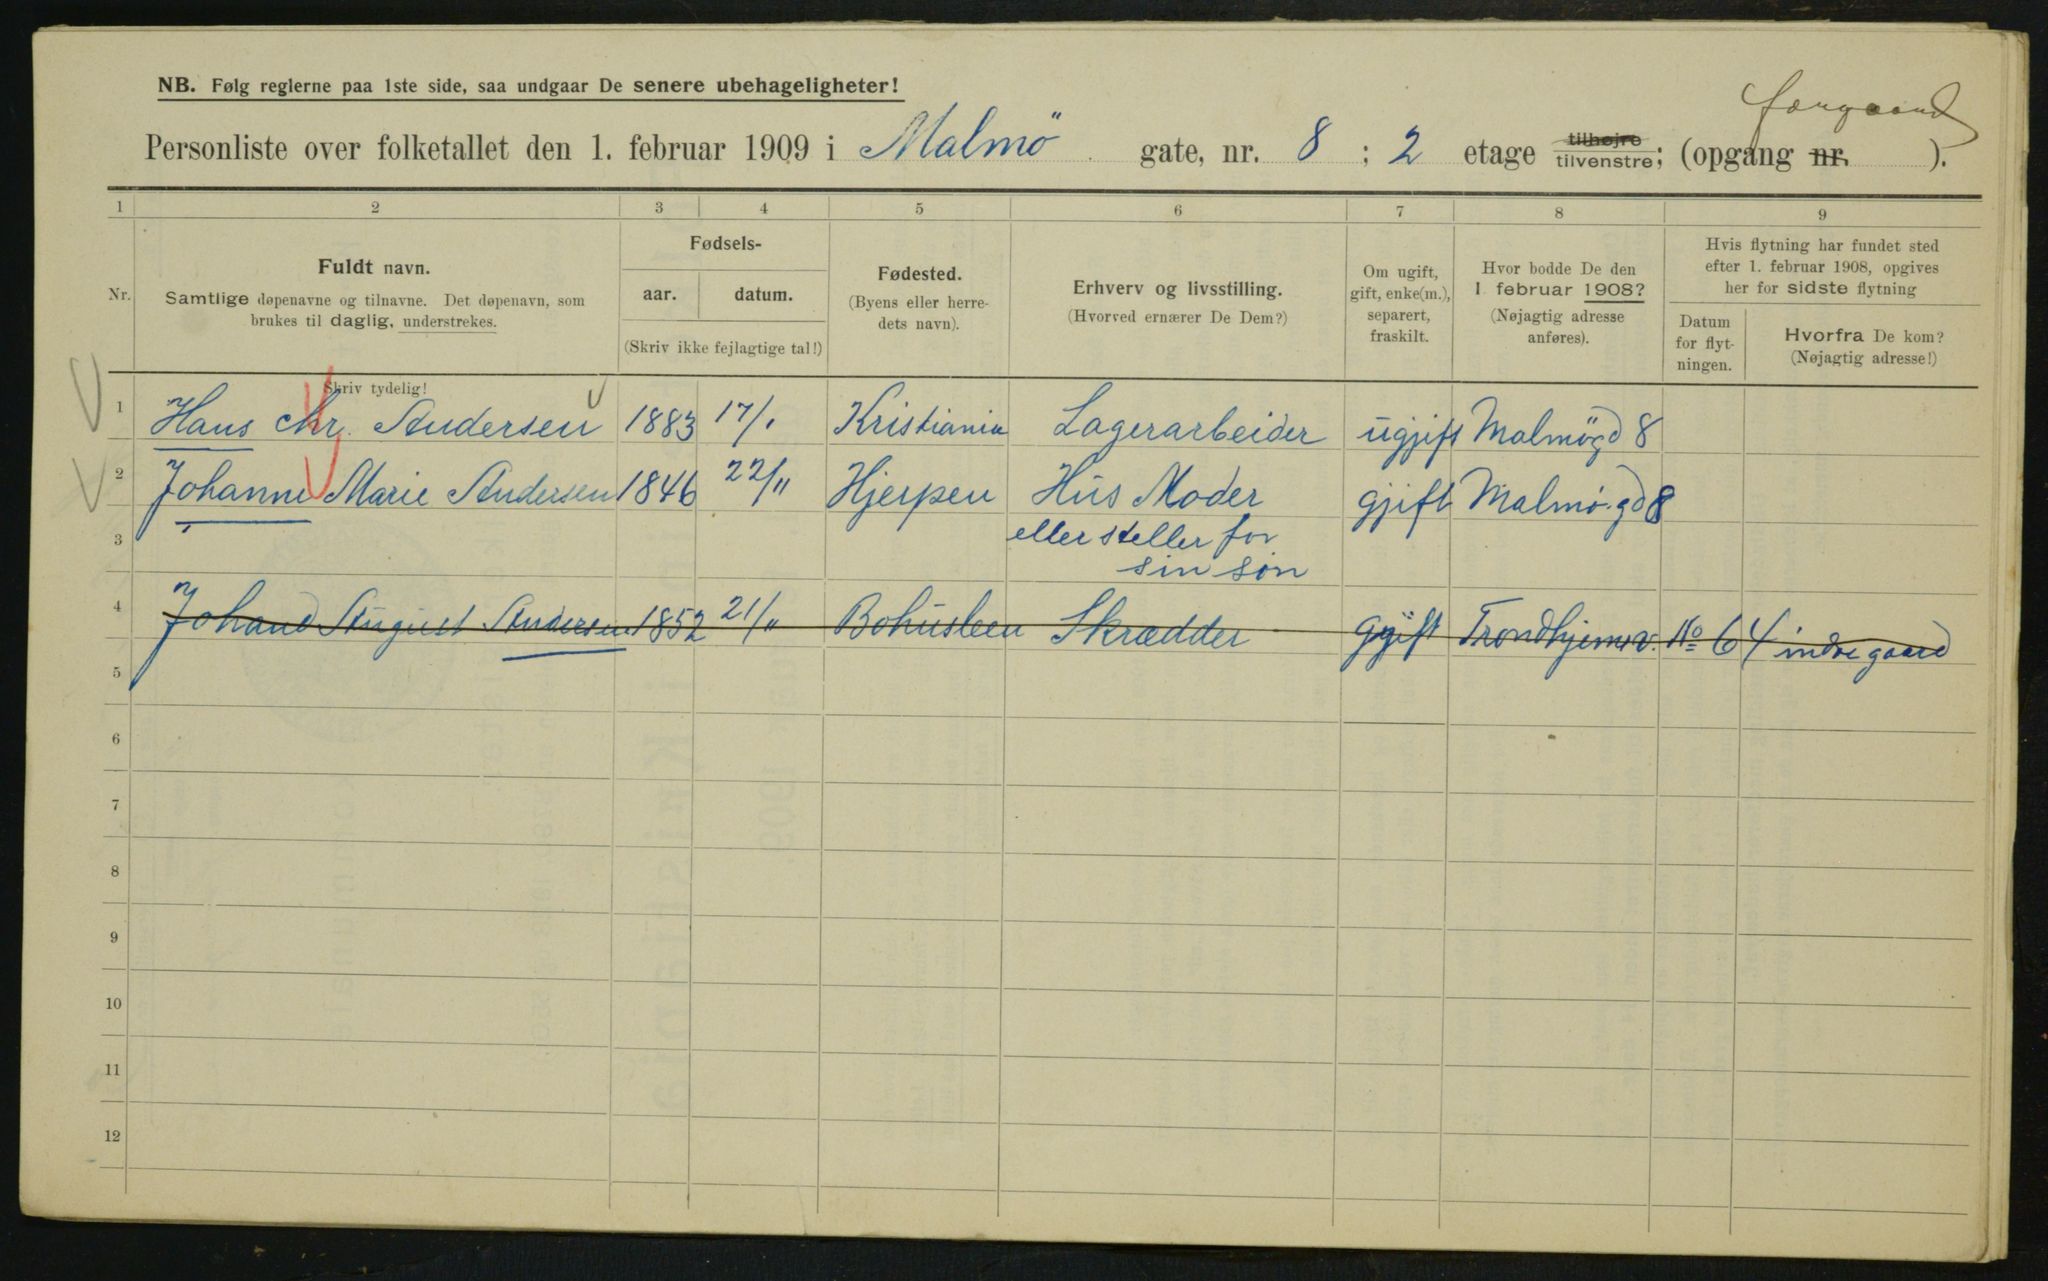 NB. Følg reglerne paa 1ste side, saa undgaar De senere ubehageligheter!
Personliste over folketallet den 1. februar 1909 i Malmö gate, nr. 8 ; 2 etage tilhøjre tilvenstre; (opgang nr. ).
1 2 3 4 5 6 7 8 9
Nr.
Fuldt navn.
Samtlige døpenavne og tilnavne. Det døpenavn, som
brukes til daglig, understrekes.
Fødsels-
aar. datum.
(Skriv ikke fejlagtige tal!)
Fødested.
(Byens eller herre-
dets navn).
Erhverv og livsstilling.
(Hvorved ernærer De Dem?)
Om ugift,
gift, enke(m.),
separert,
fraskilt.
Hvor bodde De den
1 februar 1908?
(Nøjagtig adresse
anføres).
Hvis flytning har fundet sted
efter 1. februar 1908, opgives
her for sidste flytning
Datum
for flyt-
ningen.
Hvorfra De kom?
(Nøjagtig adresse!)
Skriv tydelig!
1 Hans Chr. Andersen 1883 17/1 Kristiania Lagerarbeider ugift Malmögd 8
2 Johanne Marie Andersen 1846 22/11 Hjerpen Hus Moder gjift Malmö.gd 8
3 eller steller for
sin søn
4 Johand August Andersen 1852 21/11 Bohusleen Skrædder gjift Trondhjemsv. No 64 indre gaard
5
6
7
8
9
10
11
12